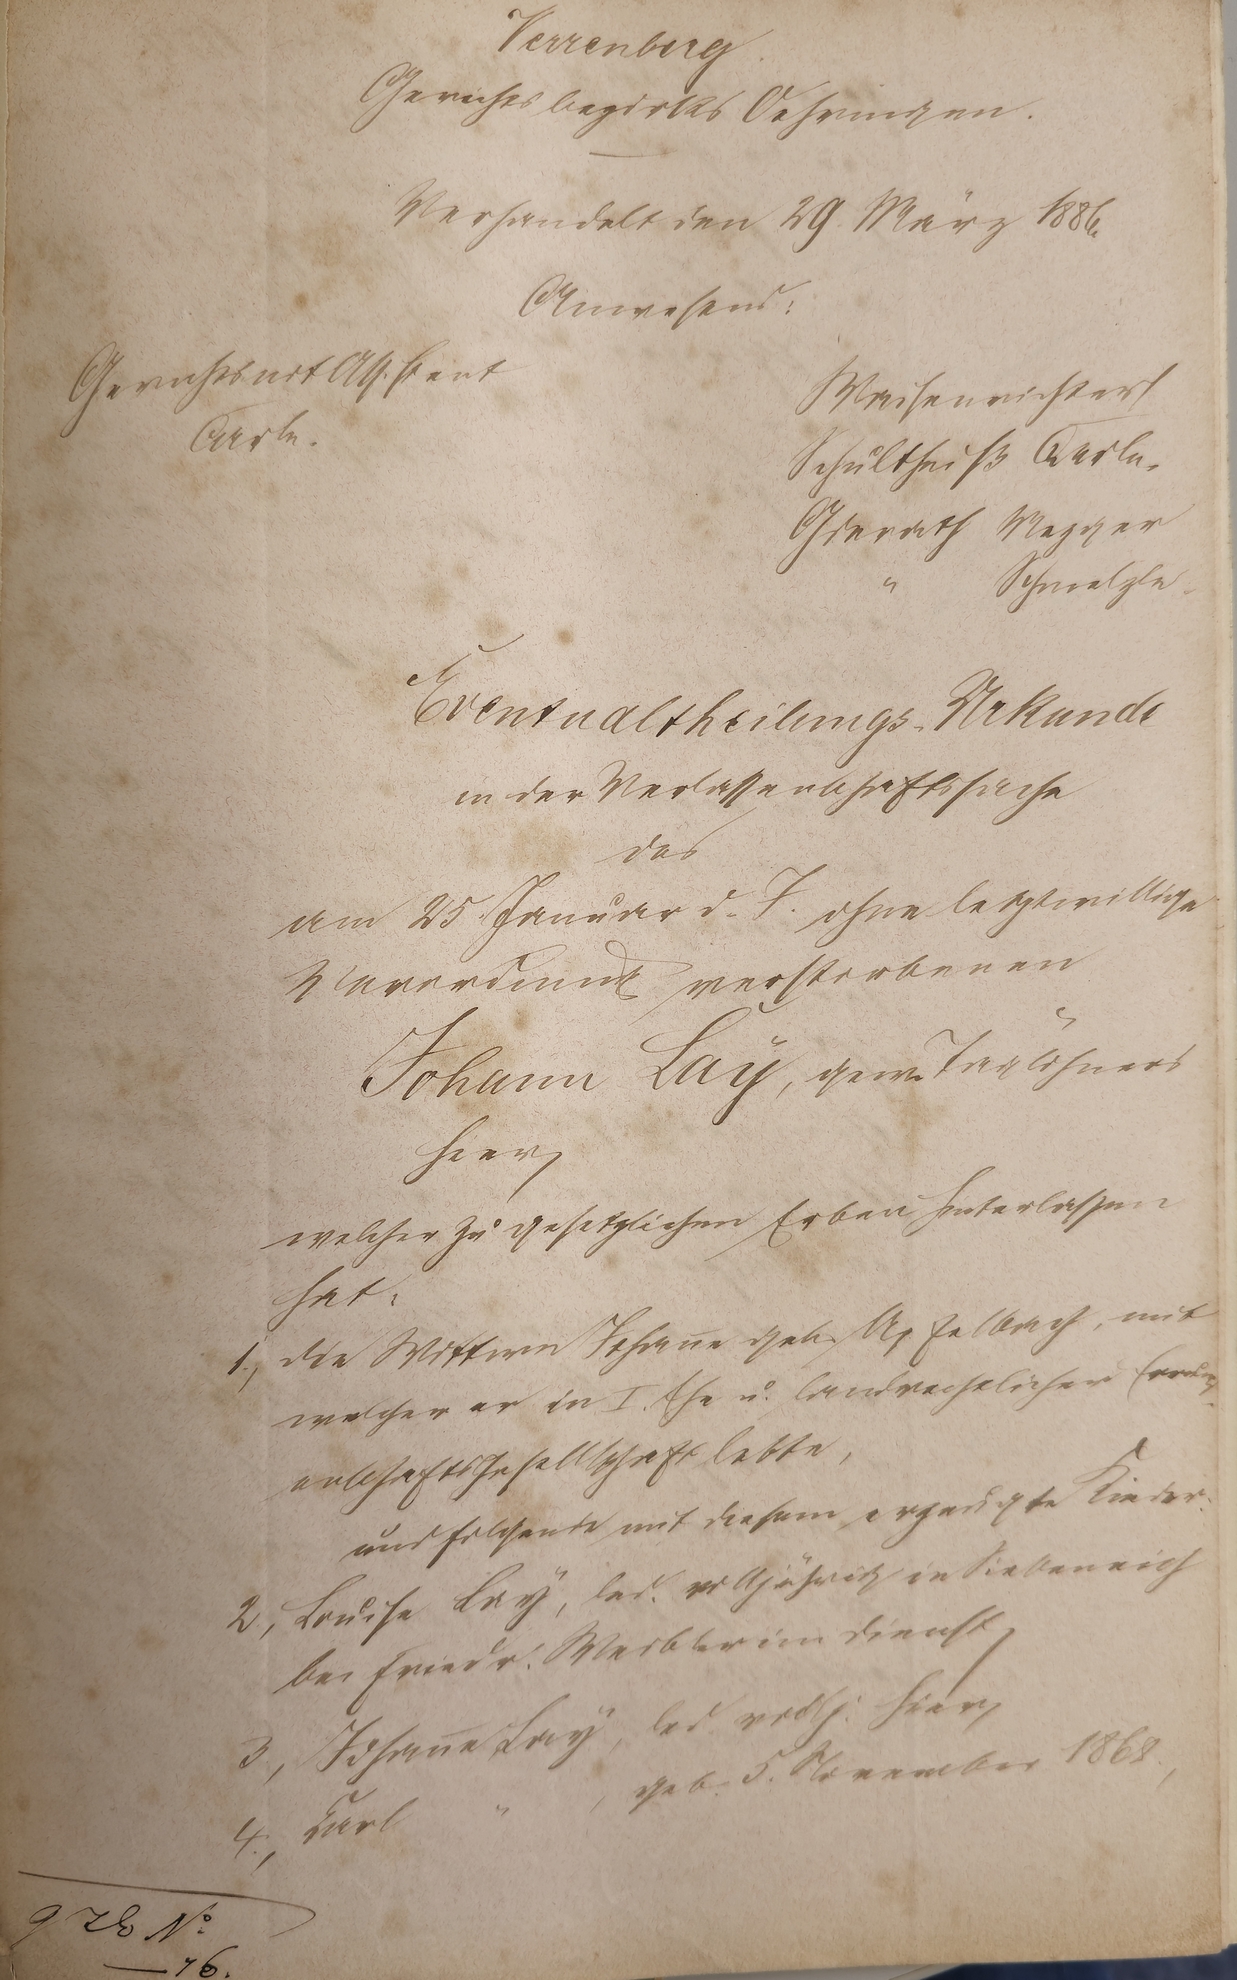 Verrenberg.
Gerichtsbezirks Oehringen.
Verhandelt den 29. März 1886.
Anwesend:
Gerichtsnot. Assistent
Carle.
Waisenrichter
Schultheiß Carle.
Gderath Mezger
" Schmelzle.
Eventualtheilungs-Urkunde
in der Verlassenschaftssache
des
am 25. Januar d. J. ohne letztwillige
Verordnung verstorbenen
Johann Lay, gew. Taglöhners
hier,
welcher zu gesetzlichen Erben hinterlassen
hat:
1., die Wittwe Johane geb. Apfelbach, mit
welcher er in I. Ehe u. landrechtlicher Errun-
enschaftsgesellschaft lebte,
und folgende mit diesem erzeugte Kinder:
2., Louise Lay, led. volljährig in Siebeneich
bei Friedr. Weibler im Dienst,
3., Johane Lay, led. vollj. hier,
4., Carl " , geb. 5. November 1868.,
No
76.